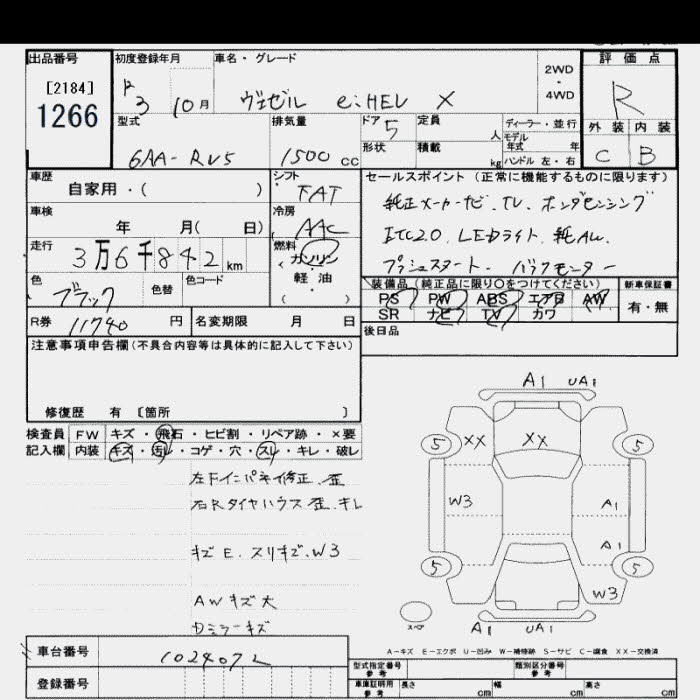 出品番号
[2184]
1266
初度登録年月
R3 10月
車名・グレード
ヴェゼル e:HEV X
2WD
・
4WD
評価点
R
外装 内装
C B
型式
6AA-RV5
排気量
1500 cc
ドア 5
形状
定員 人
積載 kg
ディーラー・並行
モデル
年式 年
ハンドル 左・右
車歴
自家用・( )
シフト
FAT
セールスポイント (正常に機能するものに限ります)
純正メーカーナビ. TV. ホンダセンシング
ETC2.0. LEDライト. 純AW.
プッシュスタート. バックモニター
車検
年 月( 日)
冷房
AAC
走行
3万6千842 km
燃料
ガソリン
軽・油
( )
色
ブラック
色替
色コード
装備品 (純正品に限り○をつけてください)
PS PW ABS エアB AW
SR ナビ TV カワ
新車保証書
有・無
R券 11740 円
名変期限 月 日
後日品
注意事項申告欄 (不具合内容等は具体的に記入して下さい)
修復歴 有 〔箇所 〕
検査員 FW キズ・飛石・ヒビ割・リペア跡・×要
記入欄 内装 キズ・汚レ・コゲ・穴・スレ・キレ・破レ
左Fインパネイ修正. 歪
右Rタイヤハウス歪. キレ
キズE. スリキズ. W3
AWキズ大
Dミラーキズ
A1 UA1
5 XX XX 5
W3 A1
A1
5 5
W3
スペア
A1 UA1
A-キズ E-エクボ U-凹み W-補修跡 S-サビ C-腐食 XX-交換済
車台番号 1024072
登録番号
型式指定番号
参考
類別区分番号
参考
車庫証明用
参考
長さ cm 幅 cm 高さ cm